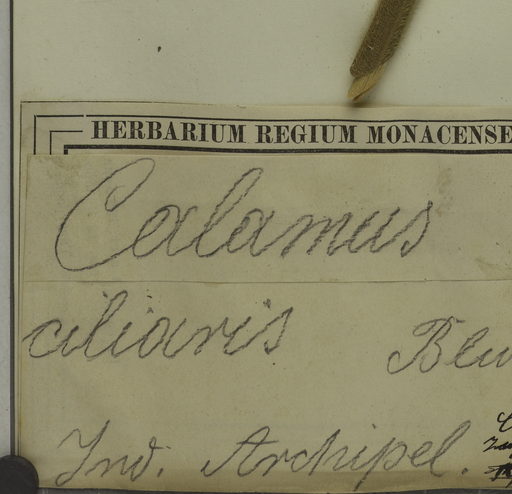 HERBARIUM REGIUM MONACENSE
Calamus
ciliaris Blu
Ind. Archipel.